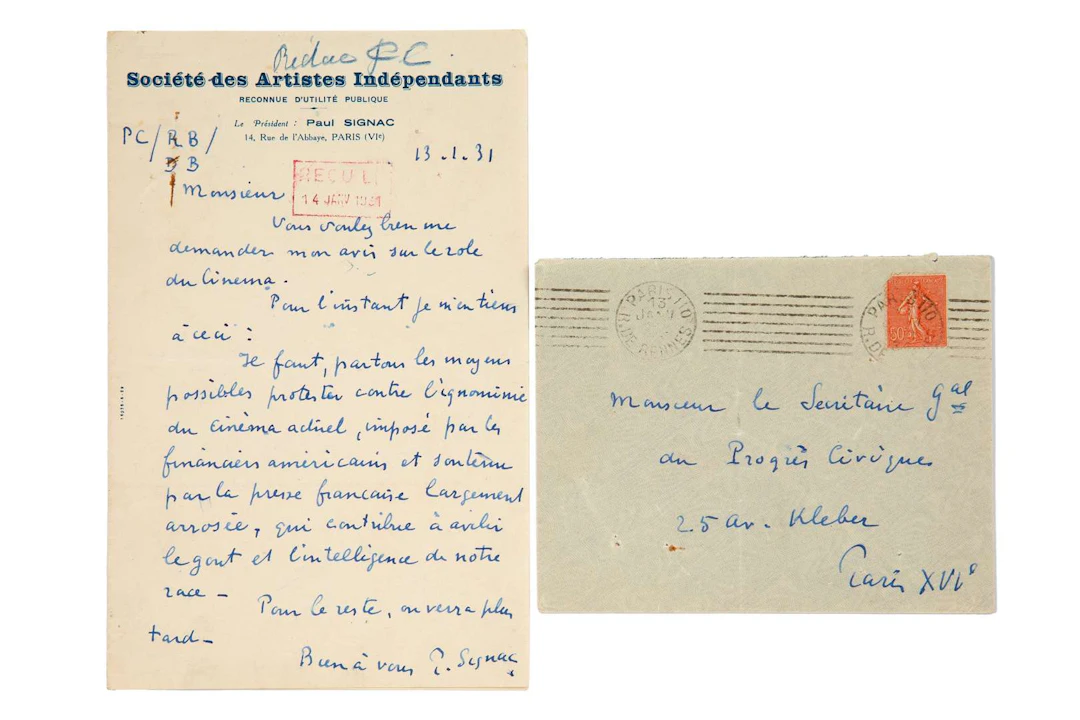 Rédac PC
Société des Artistes Indépendants
RECONNUE D'UTILITÉ PUBLIQUE
Le Président : Paul SIGNAC
14, Rue de l'Abbaye, PARIS (VIe)
PC/RB/
DB
13.1.31
REÇU LE
14 JANV 1931
Monsieur
Vous voulez bien me
demander mon avis sur le role
du Cinema.
Pour l'instant je m'en tiens
à ceci :
Il faut, par tous les moyens
possibles protester contre l'ignominie
du cinéma actuel, imposé par les
financiers américains et soutenu
par la presse française largement
arrosée, qui contribue à avilir
le gout et l'intelligence de notre
race -
Pour le reste, on verra plus
tard -
Bien à vous P. Signac
PARIS 110
13
JANV
R. DE RENNES
PARIS 110
R. DE
50
Monsieur le Secrétaire Gal
du Progrès Civique
25 av. Kleber
Paris XVIe